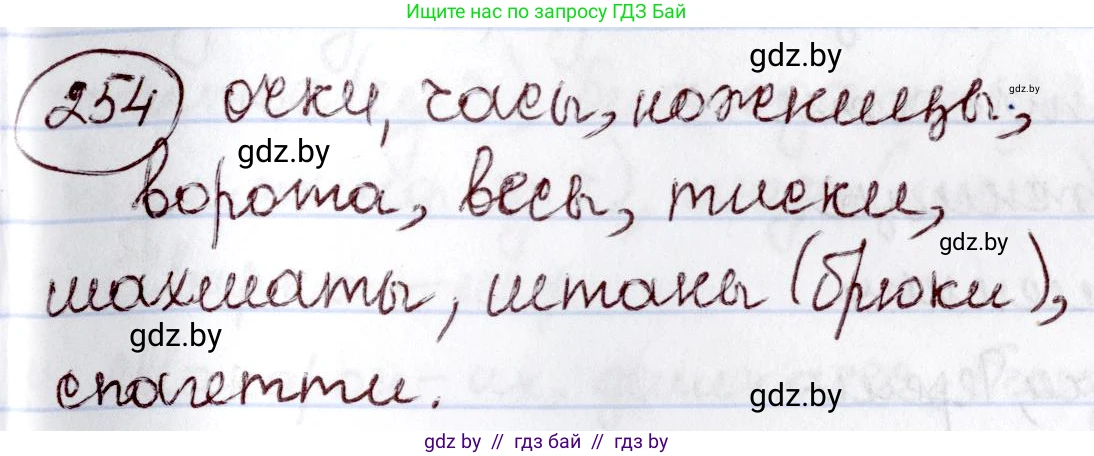 Ищите нас по запросу ГДЗ Бай
gdz.by
254 очки, часы, ножницы, gdz.by
gdz.by
ворота, весы, тиски,
gdz.by
шахматы, штаны (брюки),
gdz.by
спагетти.
gdz.by
gdz by // гдз бай // гдз by